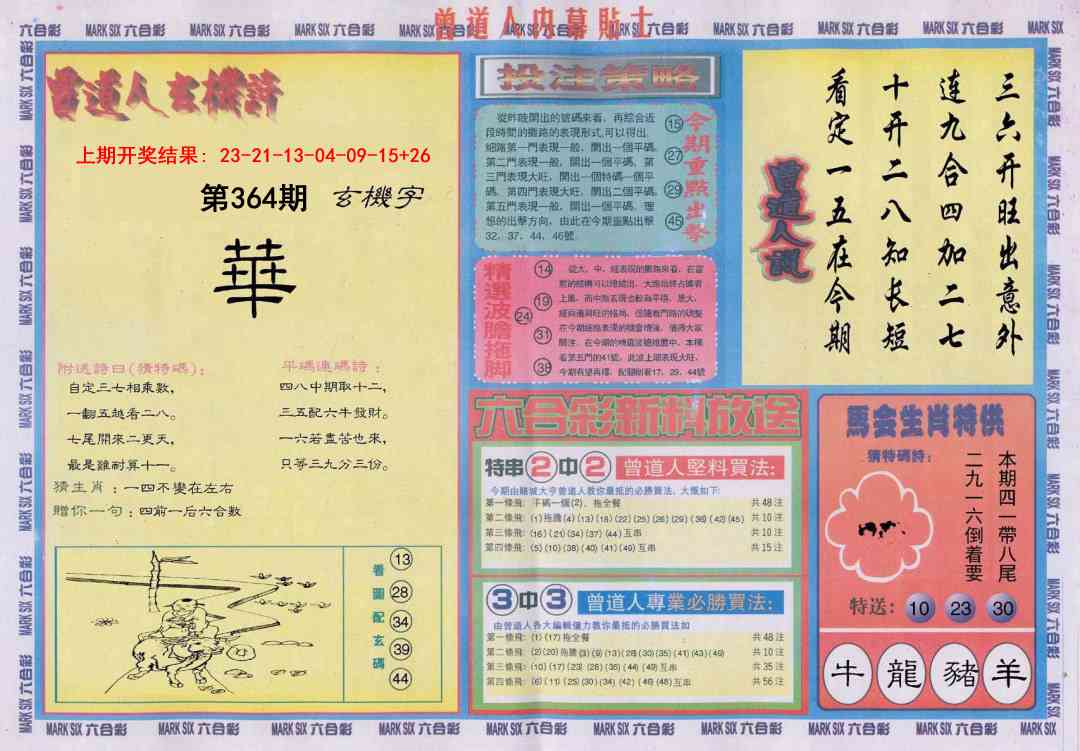 曾道人内幕貼士
六合彩 MARK SIX 六合彩 MARK SIX 六合彩 MARK SIX 六合彩 MARK SIX 六合彩 MARK SIX 六合彩 MARK SIX 六合彩 MARK SIX 六合彩 MARK SIX 六合彩 MARK SIX 六合彩 MARK SIX
曾道人玄機詩
上期开奖结果: 23-21-13-04-09-15+26
第364期 玄機字
華
附送詩曰(猜特碼):
自定三七相乘數,
一翻五越看二八。
七尾開來二更天,
最是雖耐算十一。
平碼連碼詩:
四八中期取十二,
三五配六牛發財。
一六若盡苦也來,
只等三九分三份。
猜生肖:一四不變在左右
贈你一句:四前一后六合數
看圖配玄碼
13
28
34
39
44
投注策略
從昨晚開出的號碼來看,再綜合近
段時間的攤路的表現形式,可以得出,
細踏第一門表現一般,開出一個平碼,
第二門表現一般,開出一個平碼,第
三門表現大旺,開出一個特碼一個平
碼、第四門表現大旺,開出二個平碼,
第五門表現一般,開出一個平碼。理
想的出擊方向,由此在今期重點出擊
32、37、44、46號。
今期重點出擊
15
27
29
45
精選波膽拖脚
14
19
24
31
38
今期有望再爆,配腳則看17、29、44號
六合彩新料放送
特串2中2 曾道人堅料買法:
今期由賭城大亨曾道人教你最抵的必勝買法,大慨如下:
第一條飛:平碼一個(2),拖全餐 共48注
第二條飛:(1)拖膽(4)(13)(18)(22)(25)(26)(29)(36)(42)(45) 共10注
第三條飛:(16)(21)(34)(37)(44)互串 共10注
第四條飛:(5)(10)(38)(40)(41)(49)互串 共15注
3中3 曾道人專業必勝買法:
由曾道人各大編輯傾力教你最抵的必勝買法如
第一條飛:(1)(17)拖全餐 共48注
第二條飛:(2)(20)拖膽(3)(9)(13)(28)(30)(35)(41)(43)(49) 共10注
第三條飛:(10)(17)(23)(28)(36)(44)(49)互串 共35注
第四條飛:(6)(11)(25)(30)(34)(42)(46)(48)互串 共56注
曾道人說
三六开旺出意外
连九合四加二七
十开二八知长短
看定一五在今期
馬会生肖特供
猜特碼詩:
本期四一帶八尾
二九一六倒着要
特送: 10 23 30
牛 龍 豬 羊
MARK SIX 六合彩 MARK SIX 六合彩 MARK SIX 六合彩 MARK SIX 六合彩 MARK SIX 六合彩 MARK SIX 六合彩 MARK SIX 六合彩 MARK SIX 六合彩 MARK SIX 六合彩 MARK SIX